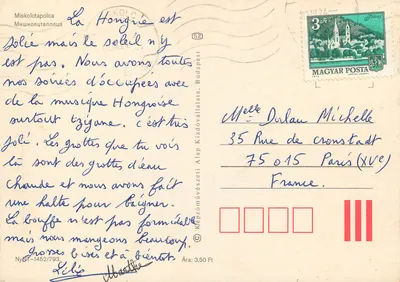 Miskolctapolca
Мишколцтапольца
La Hongrie est
jolie mais le soleil n'y
est pas. Nous avons toutes
nos soirées d'occupées avec
de la musique Hongroise
surtout tzigane. c'est très
joli. Les grottes que tu vois
là sont des grottes d'eau
chaude et nous avons fait
une halte pour baigner.
La bouffe n'est pas formidable
mais nous mangeons beaucoup.
Grosses bises et à bientôt.
Lilie Marthe
Ny
1462/793
Ára: 3,50 Ft
Képzőművészeti Alap Kiadóvállalata, Budapest
3 Ft
MAGYAR POSTA
Melle Durlau Michelle
35 Rue de cronstadt
75015 Paris (XVe)
France.